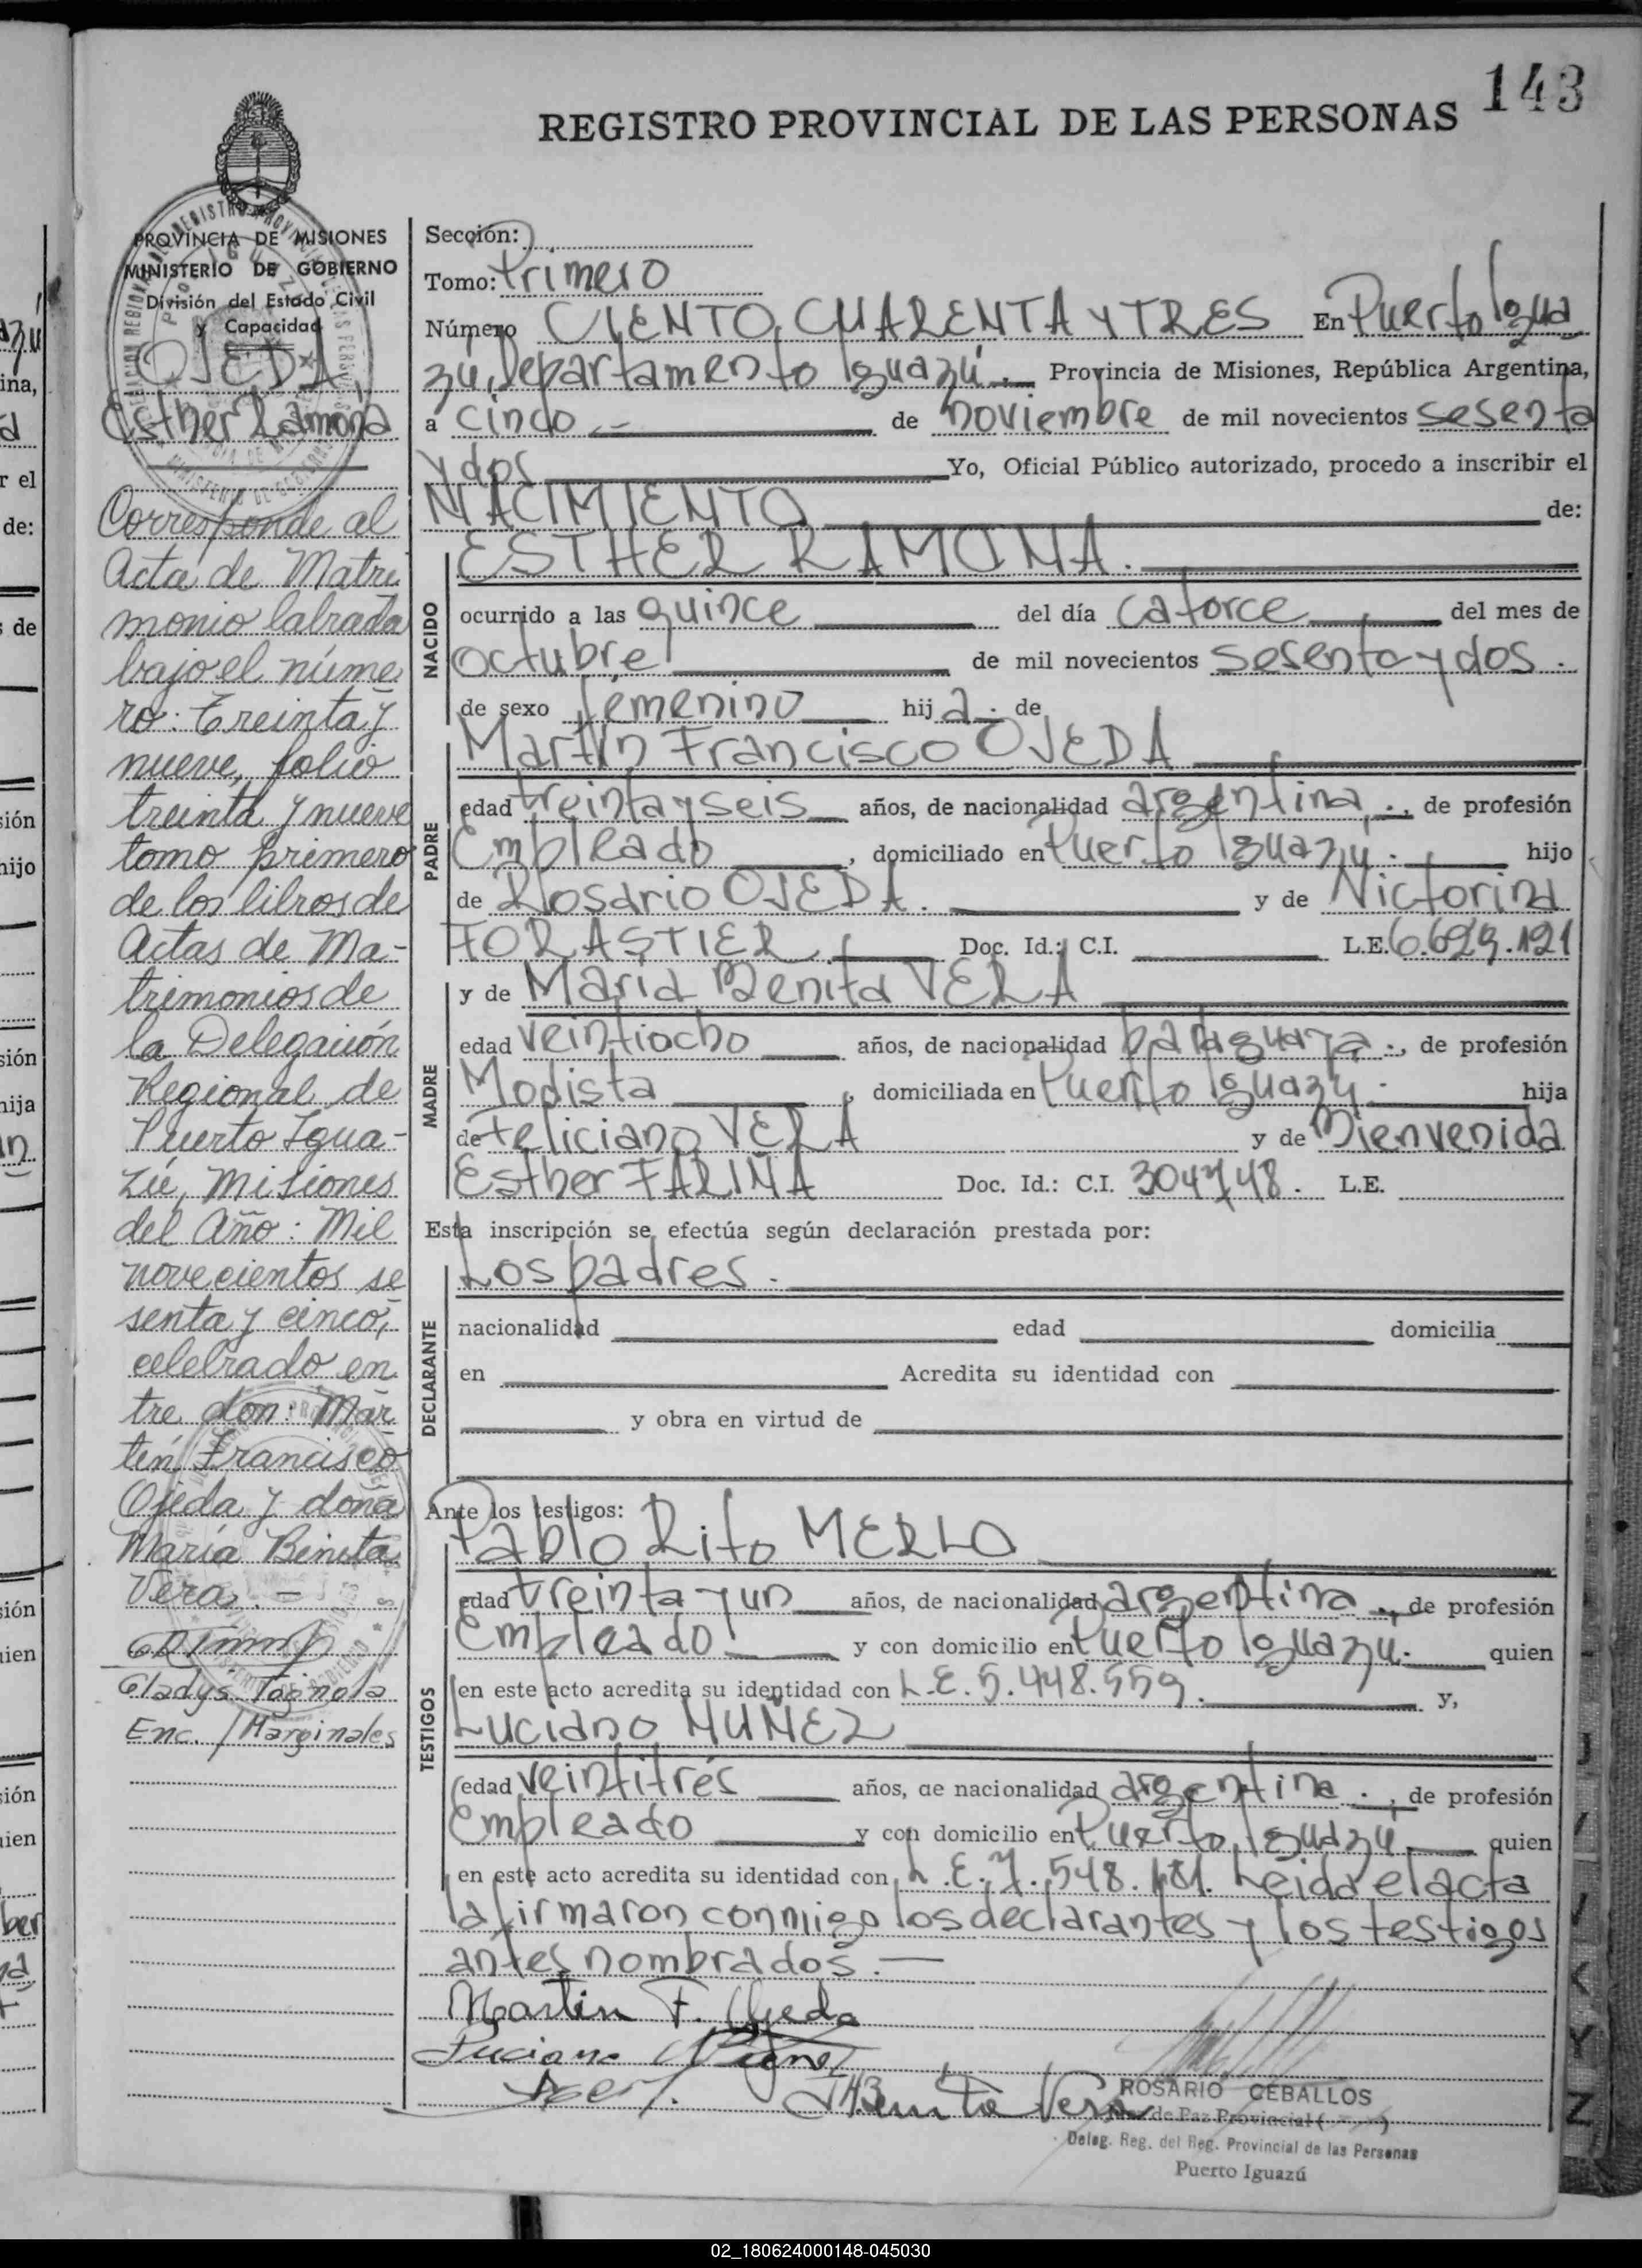 143
REGISTRO PROVINCIAL DE LAS PERSONAS
PROVINCIA DE MISIONES
MINISTERIO DE GOBIERNO
División del Estado Civil
y Capacidad
OJEDA,
Esther Ramona
Corresponde al
Acta de Matri
monio labrada
bajo el núme
ro: Treinta y
nueve, folio
treinta y nueve
tomo primero
de los libros de
Actas de Ma-
trimonios de
la Delegación
Regional de
Puerto Igua-
zú, Misiones
del Año: Mil
novecientos se
senta y cinco,
celebrado en
tre don: Mar
tín Francisco
Ojeda y dona
María Benita
Vera. —
Gladys Tognola
Enc. / Marginales
Sección:
Tomo: Primero
Número CIENTO CUARENTA Y TRES En Puerto Igua
zú, Departamento Iguazú.- Provincia de Misiones, República Argentina,
a cinco.- de noviembre de mil novecientos sesenta
y dos Yo, Oficial Público autorizado, procedo a inscribir el
NACIMIENTO de:
ESTHER RAMONA.
NACIDO
ocurrido a las quince del día catorce del mes de
octubre de mil novecientos sesenta y dos.
de sexo femenino hija.- de
Martín Francisco OJEDA
PADRE
edad treinta y seis años, de nacionalidad argentina.-, de profesión
Empleado, domiciliado en Puerto Iguazú.- hijo
de Rosario OJEDA. y de Victorina
FORASTIER. Doc. Id.: C.I. L.E. 6.629.121
y de María Benita VERA
MADRE
edad veintiocho años, de nacionalidad paraguaya.-, de profesión
Modista, domiciliada en Puerto Iguazú.- hija
de Feliciano VERA y de Bienvenida
Esther FARIÑA Doc. Id.: C.I. 304748. L.E.
Esta inscripción se efectúa según declaración prestada por:
Los padres.
DECLARANTE
nacionalidad edad domicilia
en Acredita su identidad con
y obra en virtud de
Ante los testigos:
Pablo Rito MERLO
TESTIGOS
edad treinta y un años, de nacionalidad argentina.-, de profesión
Empleado y con domicilio en Puerto Iguazú.- quien
en este acto acredita su identidad con L.E. 5.448.559. y,
Luciano NUÑEZ
edad veintitrés años, de nacionalidad argentina.-, de profesión
Empleado y con domicilio en Puerto Iguazú quien
en este acto acredita su identidad con L.E. 7.548. Leida el acta
la firmaron conmigo los declarantes y los testigos
antes nombrados.—
Martin F. Ojeda
Luciano Nuñez
Benita Vera
ROSARIO CEBALLOS
Juez de Paz Provincial
Deleg. Reg. del Reg. Provincial de las Personas
Puerto Iguazú
02_180624000148-045030